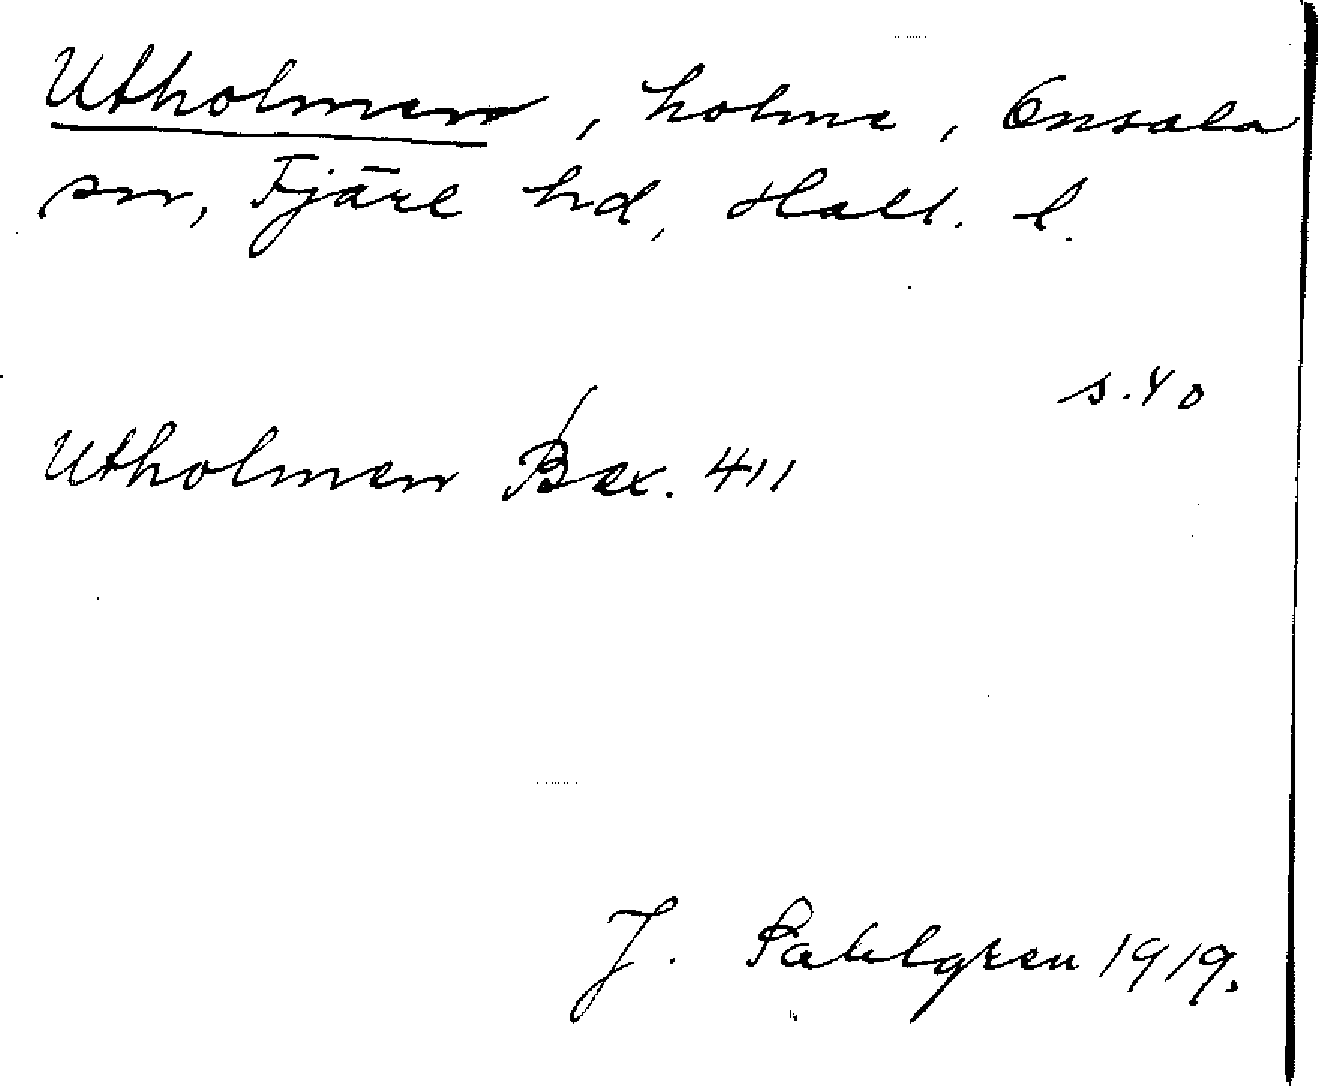 Utholmen, holme, Onsala
sn, Fjäre hd, Hall. l.
s. 40
Utholmen Bex. 411
J. Sahlgren 1919.